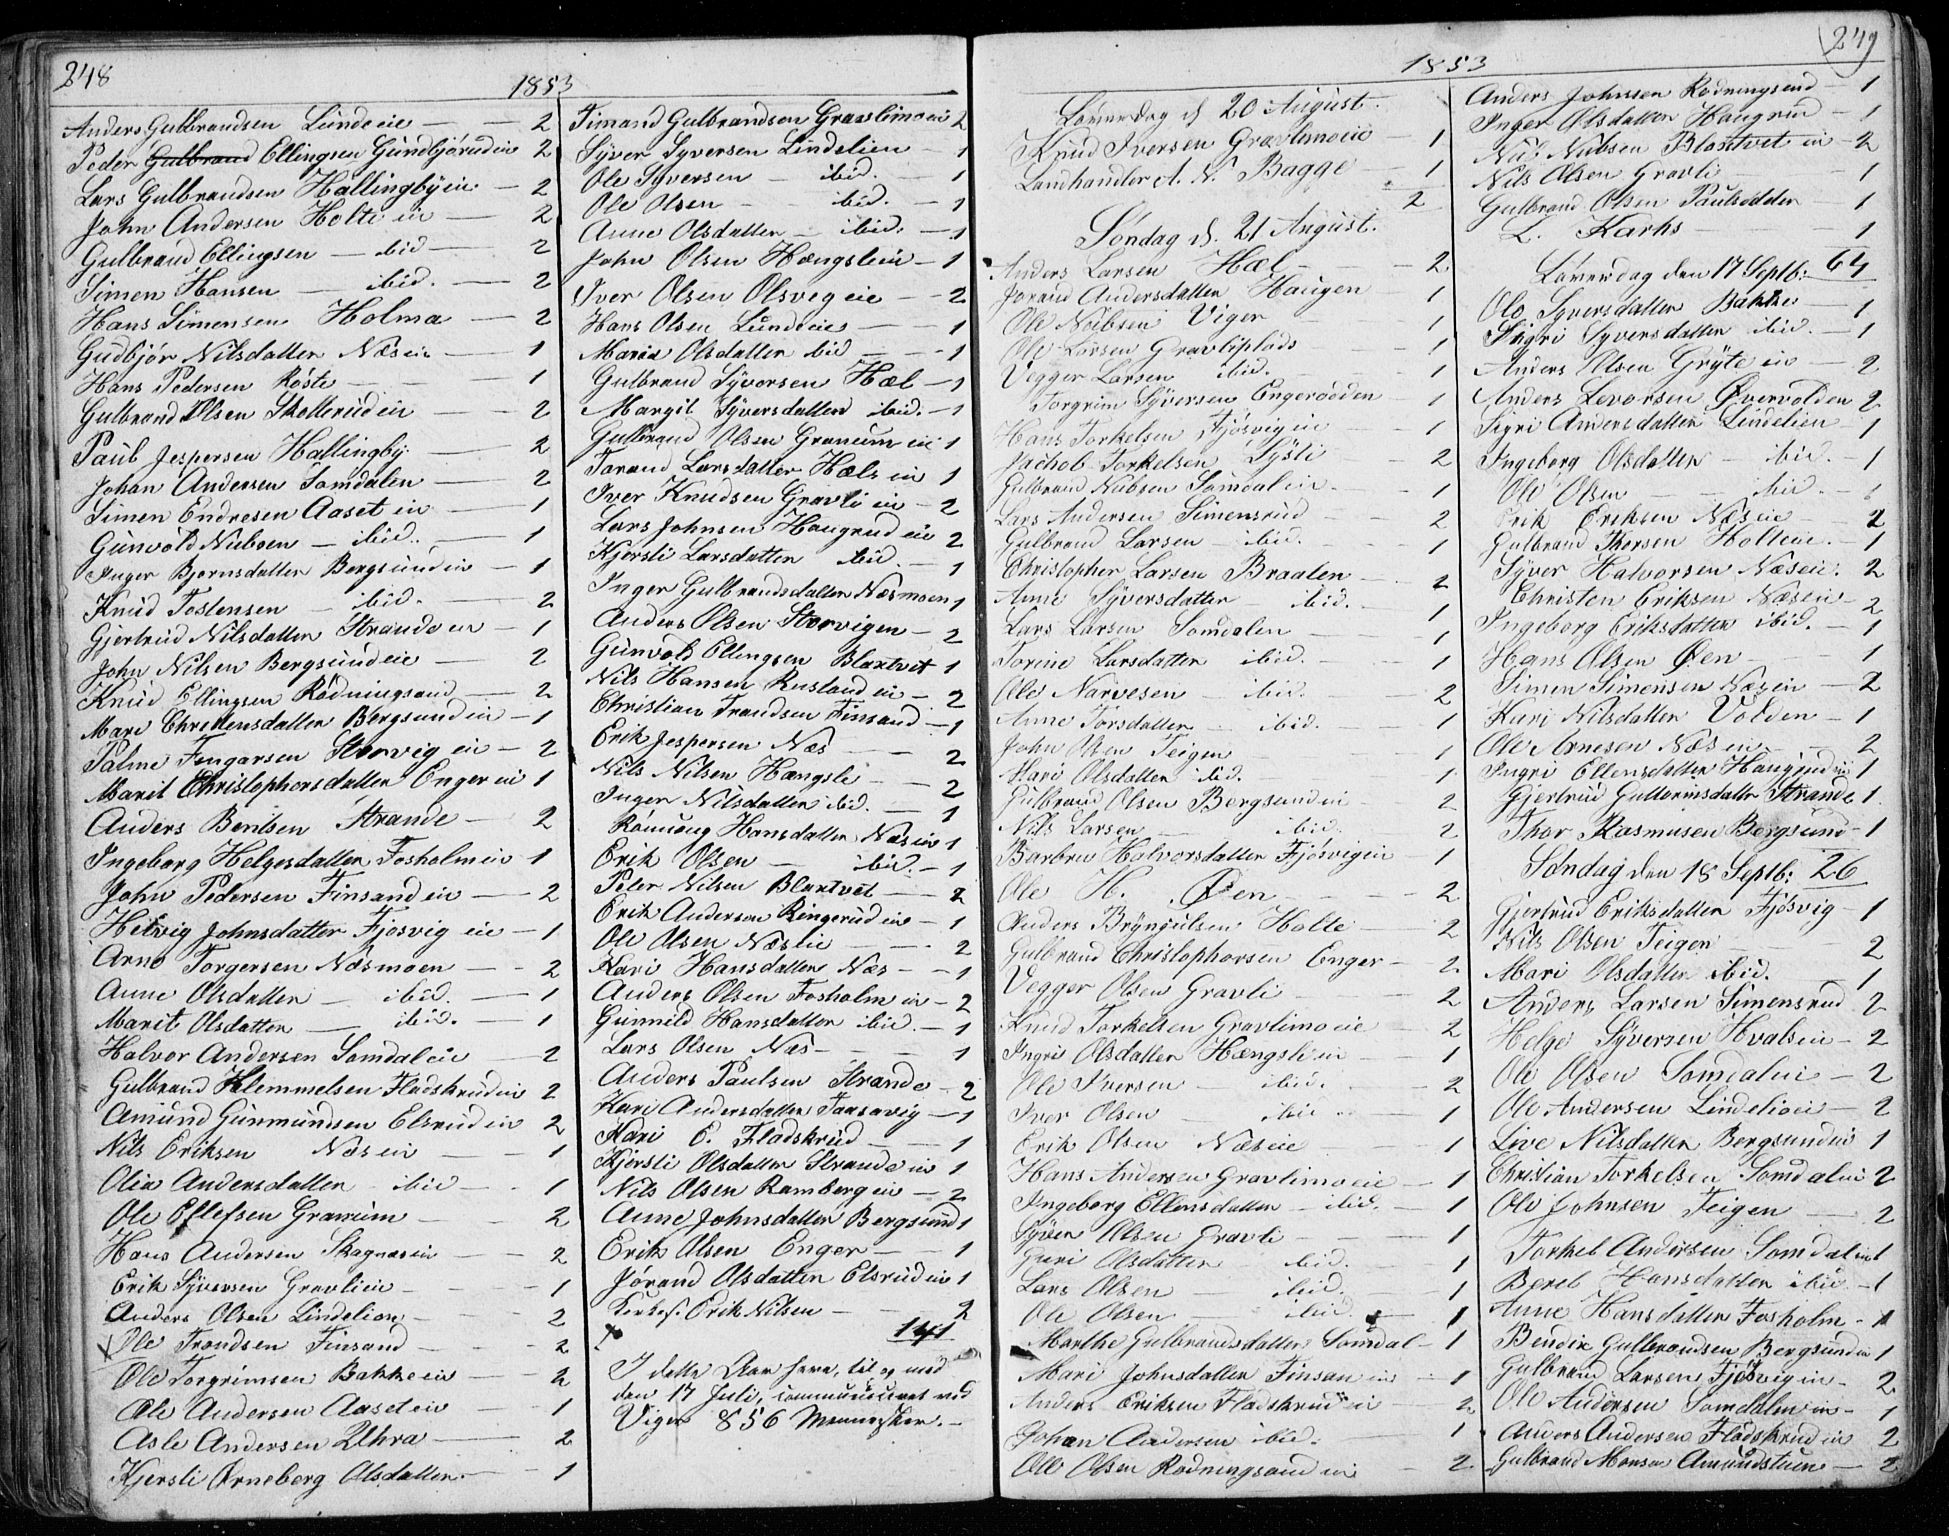 248
1853
Anders Gulbrandsen Lündeeie — 2
Peder Gulbrand Ellingsen Gündbjørüdeie 2
Lars Gulbrandsen Hallingbyeie — 2
John Andersen Holteeie — 2
Gulbrand Ellingsen — ibid — 2
Simen Hansen — ibid. — 2
Hans Simensen Holma — 2
Gudbjør Nilsdatter Næseie — 1
Hans Pedersen Røste — 1
Gulbrand Olsen Skollerüdeie — 2
Paul Jespersen Hallingby — 2
Johan Andersen Somdalen — 2
Simen Endresen Aaseteie — 1
Günvold Nielsen — ibid. — 1
Inger Bjørnsdatter Bergsündeie — 1
Knüd Tostensen — ibid. — 2
Gjertrüd Nilsdatter Strandeeie — 1
John Nilsen Bergsündeie — 2
Knüd Ellingsen Rødningsand — 2
Mari Christensdatter Bergsundeie — 1
Palme Storvigeie — 2
Marit Christophersdatter Engereie 1
Anders Bentsen Strande — 2
Ingeborg Helgesdatter Fosholmeie — 1
John Pedersen Finsandeie — 2
Helvig Johnsdatter Fjøsvigeie — 1
Arne Torgersen Næsmoen — 2
Anne Olsdatter — ibid. — 1
Marit Olsdatter — ibid. — 1
Halvor Andersen Somdaleie — 2
Gulbrand Klemmetsen Fladskrudeie 2
Amünd Gürmündsen Elsrüdeie 2
Nils Eriksen Næseie — 1
Olia Andersdatter ibid — 1
Ole Ellefsen Granum — 2
Hans Andersen Skagnæseie — 2
Erik Syversen Gravlieie — 1
Anders Olsen Lindelien — 2
Ole Trondsen Finsand — 2
Ole Torgrimsen Bakkeeie — 2
Ole Andersen Aaseteie — 1
Asle Andersen Uhra — 2
Kjersti Arneberg Olsdatter — 1
Timand Gulbrandsen Gravlimoeie 2
Syver Syversen Lindelien — 1
Ole Syversen — ibid. — 1
Ole Olsen — ibid. — 1
Anne Olsdatter — ibid. — 1
John Olsen Hængsleeie — 1
Iver Olsen Olsvigeie — 2
Hans Olsen Lündeeie — 1
Maria Olsdatter ibid — 1
Gulbrand Syversen Hæl — 1
Margit Syversdatter ibid. — 1
Gulbrand Olsen Granumeie 1
Torand Larsdatter Hælseie 1
Iver Knudsen Gravlieie — 2
Lars Johnsen Haugrudeie 2
Kjersti Larsdatter ibid. — 1
Inger Gulbrandsdatter Næsmoen 1
Anders Olsen Storvigen — 2
Günvold Ellingsen Blaxtvet 1
Nils Hansen Rustandeie — 2
Christian Trandsen Finsand — 1
Erik Jespersen Næs — 2
Nils Nilsen Hængsle — 2
Inger Nilsdatter ibid. — 1
Rønnoug Hansdatter Næseie 1
Erik Olsen — ibid. — 1
Peter Nilsen Blaxtvet — 2
Erik Andersen Ringerudeie — 1
Ole Olsen Næseie — 2
Kari Hansdatter Næs — 1
Anders Olsen Fosholmeie — 2
Günnild Hansdatter ibid. — 1
Lars Olsen Næs — 1
Anders Paulsen Strande — 2
Kari Andersdatter Taasavig — 1
Kari E. Fladskrüd — 1
Kjersti Olsdatter Strandeeie 1
Nils Olsen Rambergeie — 2
Anne Johnsdatter Bergsund 1
Erik Olsen Enger — 1
Jørand Olsdatter Elsrüdeie 1
Kirkes. Erik Nilsen — 2
141
I dette Aar have, til og med
den 17 Juli, communiceret ved
Viger 856 Mennesker. —
249
1853
Løverdag d. 20 August.
Knüd Iversen Gravlimoeie — 1
Landhandler A. N. Bagge 1
2
Søndag d. 21 August.
Anders Larsen Hæl — 2
Jørand Andersdatter Haugen 1
Ole Nubsen Viger — 1
Ole Larsen Gravliplads — 1
Vegger Larsen ibid. — 1
Torgrim Syversen Engerodden — 1
Hans Torkelsen Fjøsvigeie — 1
Jachob Torkelsen Lysli — 2
Gulbrand Nubsen Somdaleie — 1
Lars Andersen Simensrud — 2
Gulbrand Larsen — ibid. — 1
Christopher Larsen Braaten — 2
Anne Syversdatter — ibid. — 1
Lars Larsen Somdalen — 1
Torine Larsdatter ibid. — 1
Ole Narvesen — ibid. — 2
Anne Torsdatter — ibid. — 1
John Olsen Teigen — 1
Kari Olsdatter ibid. — 1
Gulbrand Olsen Bergsundeie 2
Nils Larsen — ibid. 2
Barbro Halvorsdatter Fjøsvigeie 1
Ole H. Øen — 2
Anders Brynjulsen Holte — 2
Gulbrand Christophersen Enger — 2
Vegger Olsen Gravli — 2
Knud Torkelsen Gravlimoeie — 2
Ingri Olsdatter Hængsleeie — 1
Ole Iversen — ibid. — 2
Iver Olsen — ibid — 1
Erik Olsen Næseie — 1
Hans Andersen Gravlimoeie — 1
Ingeborg Ellensdatter — ibid. — 1
Syver Olsen Gravli — 1
Guri Olsdatter ibid. 1
Lars Olsen ibid. — 1
Ole Olsen ibid. — 1
Marthe Gulbrandsdatter Somdal — 1
Mari Johnsdatter Finsandeie — 1
Anders Eriksen Fladskrudeie — 2
Johan Andersen ibid. — 1
Ole Olsen Rødningsandeie — 2
Anders Johnsen Rødningsand — 1
Inger Olsdatter Haugrud — 1
Nub Nubsen Blaxtveteie — 2
Nils Olsen Gravli — 1
Gulbrand Olsen Paulsødden — 1
L. Karhs — 1
64
Løverdag den 17 Septb:
Ole Syversdatter Bakke — 1
Sigri Syversdatter ibid. — 1
Anders Olsen Gryteeie — 2
Anders Levorsen Øvervolden 2
Sigri Andersdatter Lindelien 1
Ingeborg Olsdatter — ibid. — 1
Ole Olsen — ibid. — 1
Erik Eriksen Næseie — 2
Gulbrand Thorsen Holteeie. — 1
Syver Halvorsen Næseie. 2
Christen Eriksen Næseie — 2
Ingeborg Eriksdatter ibid. — 1
Hans Olsen Øen — 1
Simen Simensen Næseie — 2
Kari Nilsdatter Volden — 1
Ole Arnesen Næseie — 2
Ingri Ellensdatter Haugrudeie 1
Gjertrud Guttormsdatter Strande 1
Thor Rasmusen Bergsund — 1
Søndag den 18 Septb: 26
Gjertrud Eriksdatter Fjøsvig — 1
Nils Olsen Teigen — 2
Mari Olsdatter ibid. — 1
Anders Larsen Simensrud 2
Helge Syversen Hvalseie — 2
Ole Olsen Somdaleie — 2
Ole Andersen Lindelieeie — 2
Live Nilsdatter Bergsundeie 1
Christian Torkelsen Somdaleie 2
Ole Johnsen Teigen — 2
Torkel Andersen Somdaleie 1
Beret Hansdatter ibid — 1
Anne Hansdatter Fosholm — 1
Bendix Gulbrandsen Bergsundeie 1
Gulbrand Larsen Fjøsvigeie — 2
Ole Andersen Somdaleneie — 1
Anders Andersen Fladskrudeie 2
Gulbrand Monsen Amundstuen — 2